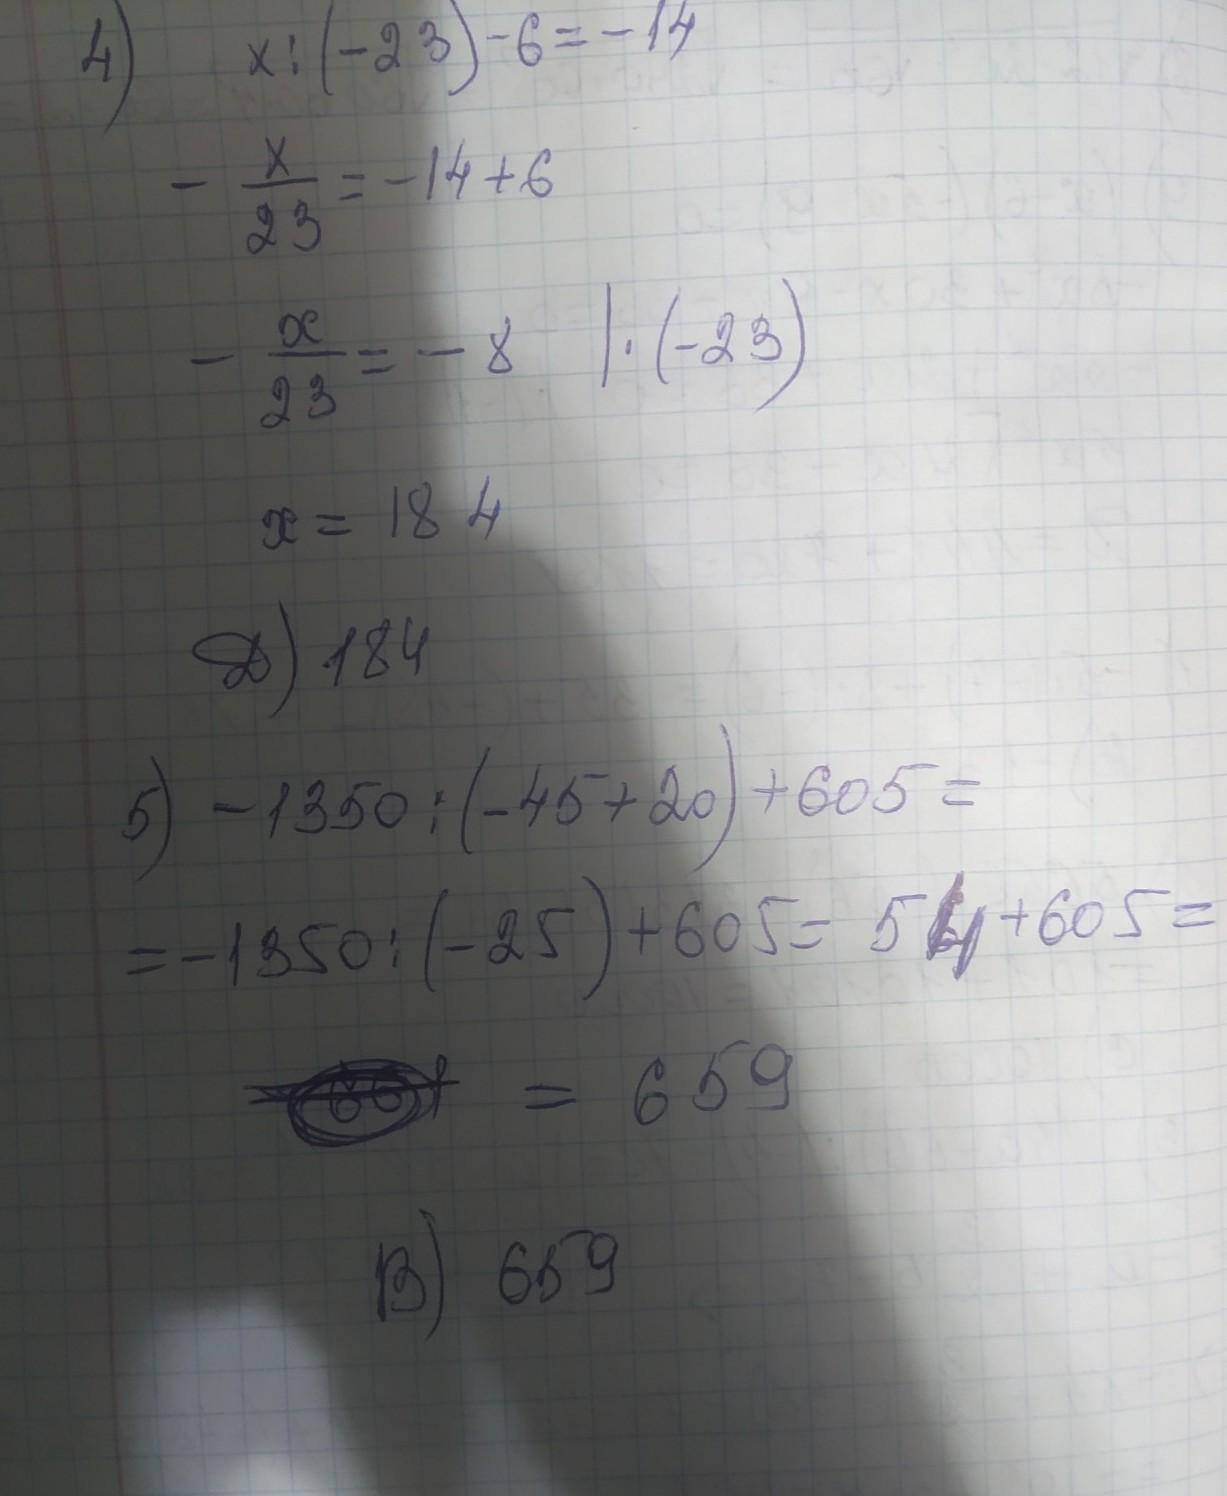 4) x : (-23) - 6 = -14
- x/23 = -14 + 6
- x/23 = - 8 | · (-23)
x = 184
Д) 184
5) -1350 : (-45 + 20) + 605 =
= -1350 : (-25) + 605 = 54 + 605 =
= 659
В) 659